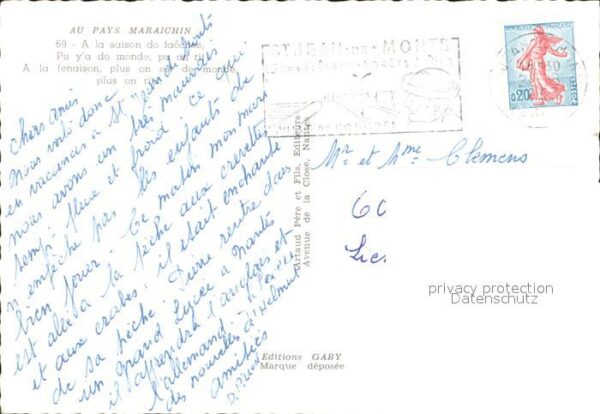 AU PAYS MARAICHIN
69 - A la saison do faöches,
Pu y'a do monde, pu an rit
A la fenaison, plus on est de monde,
plus on rit
ST JEAN DE MONTS
REPUBLIQUE FRANÇAISE
0,20
POSTES
Chers amis
Nous voilà donc
en vacances à St Jean de Monts
nous avons un très mauvais
temps pluie et froid ce qui
n'empêche pas les enfants de
bien jouer. Ce matin mon mari
est allé à la pêche aux crevettes
et aux crabes. il était enchanté
de sa pêche. Pierre rentre dans
un grand Lycée à Nantes
il apprendra l'anglais et
l'allemand.
des nouvelles d'Helmut
amitiés
Mr et Mme Clemens
60
Artaud Père et Fils, Editeurs
Avenue de la Close, Nantes
privacy protection
Datenschutz
Editions GABY
Marque déposée